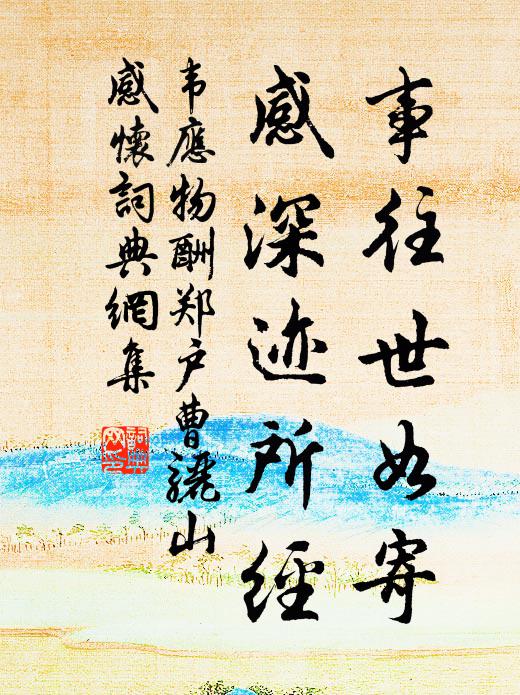 事往世如寄
感深迹所经
韦應物酬郑户曹骊山
感懷詞典網集